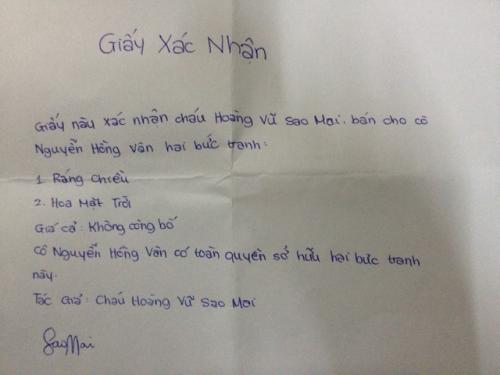 Giấy Xác Nhận
Giấy này xác nhận cháu Hoàng Vũ Sao Mai. bán cho cô
Nguyễn Hồng Vân hai bức tranh:
1. Ráng Chiều
2. Hoa Mặt Trời
Giá cả: Không công bố
Cô Nguyễn Hồng Vân có toàn quyền sở hữu hai bức tranh
này.
Tác Giả: Cháu Hoàng Vũ Sao Mai
SaoMai